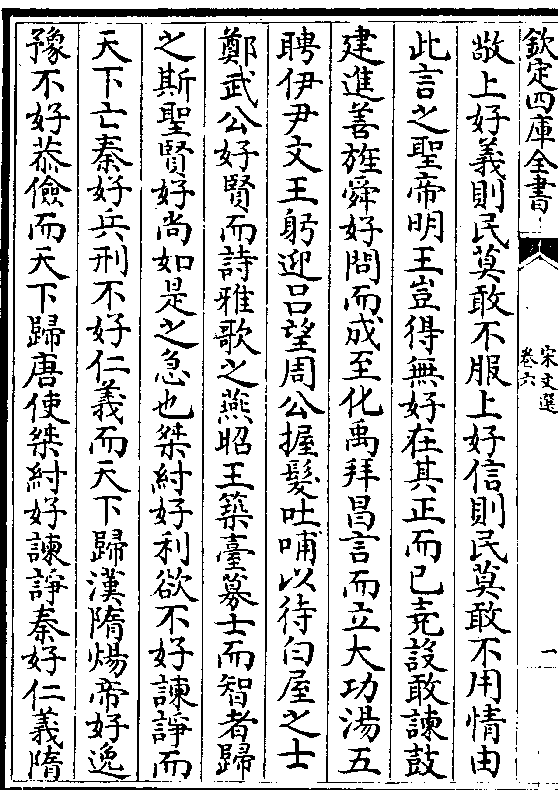 欽定四庫全書
宋文選
卷六
一
敬上好義則民莫敢不服上好信則民莫敢不用情由
此言之聖帝明王豈得無好在其正而已堯設敢諫鼓
建進善旌舜好問而成至化禹拜昌言而立大功湯五
聘伊尹文王躬迎吕望周公握髮吐哺以待白屋之士
鄭武公好賢而詩雅歌之燕昭王築臺募士而智者歸
之斯聖賢好尚如是之急也桀紂好利欲不好諫諍而
天下亡秦好兵刑不好仁義而天下歸漢隋煬帝好逸
豫不好恭儉而天下歸唐使桀紂好諫諍秦好仁義隋